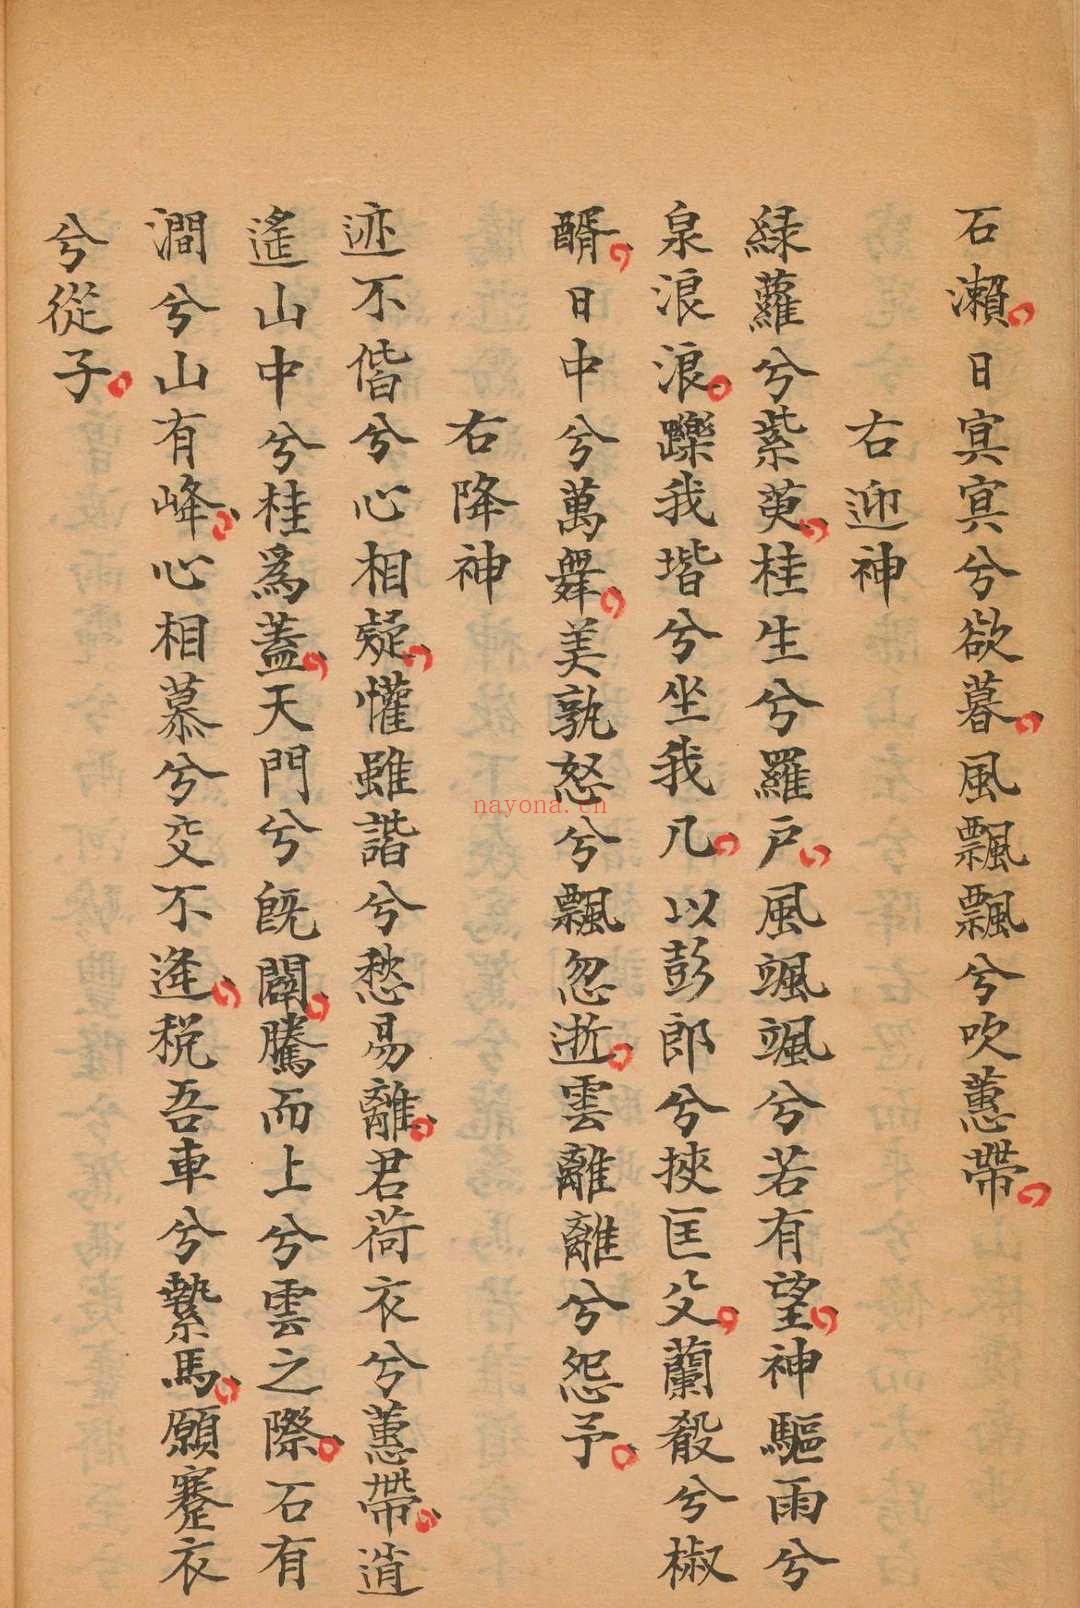 石瀨日㝠㝠兮欲暮風飄飄兮吹蕙帶
右迎神
緑蘿兮紫萸桂生兮羅戸風颯颯兮若有望神驅雨兮
泉浪浪躒我堦兮坐我几以彭郎兮挾匡父蘭殽兮椒
醑日中兮萬舞美孰怒兮飄忽逝雲離離兮怨予
右降神
迹不偕兮心相疑懽雖諧兮愁易離君荷衣兮蕙帶逍
遙山中兮桂爲蓋天門兮旣闢騰而上兮雲之際石有
澗兮山有峰心相慕兮交不逢税吾車兮縶馬願蹇衣
兮從子
nayona.cn